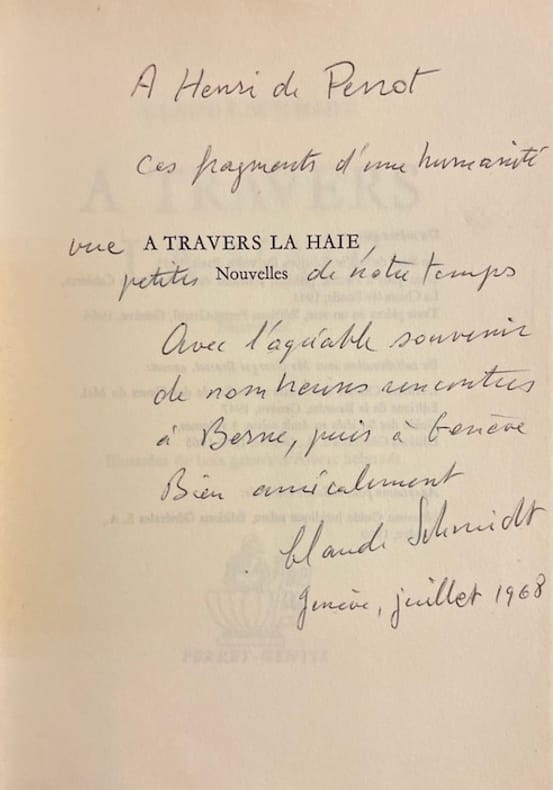 A Henri de Perrot
ces fragments d'une humanité
vue A TRAVERS LA HAIE,
petites Nouvelles de notre temps
Avec l'agréable souvenir
de nombreuses rencontres
à Berne, puis à Genève
Bien amicalement
Claude Schmidt
Genève, juillet 1968